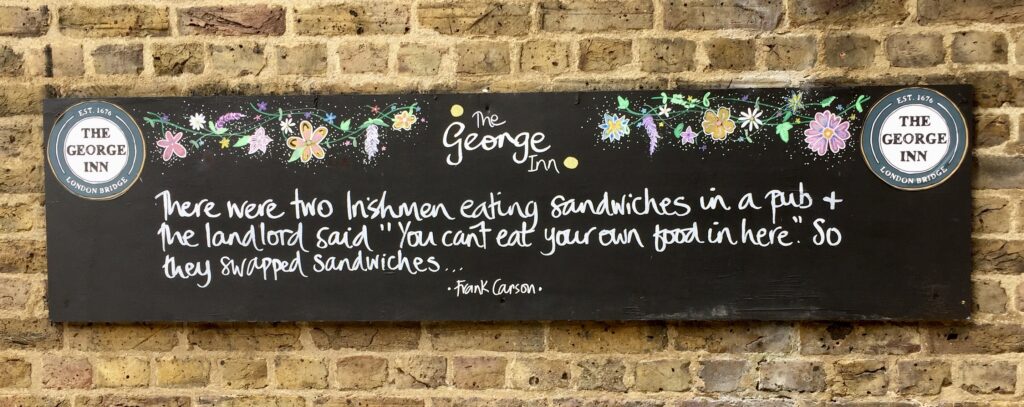 EST. 1676
THE
GEORGE
INN
LONDON BRIDGE
The
George
Inn
EST. 1676
THE
GEORGE
INN
LONDON BRIDGE
There were two Irishmen eating sandwiches in a pub +
the landlord said "You can't eat your own food in here." So
they swapped sandwiches...
· Frank Carson ·